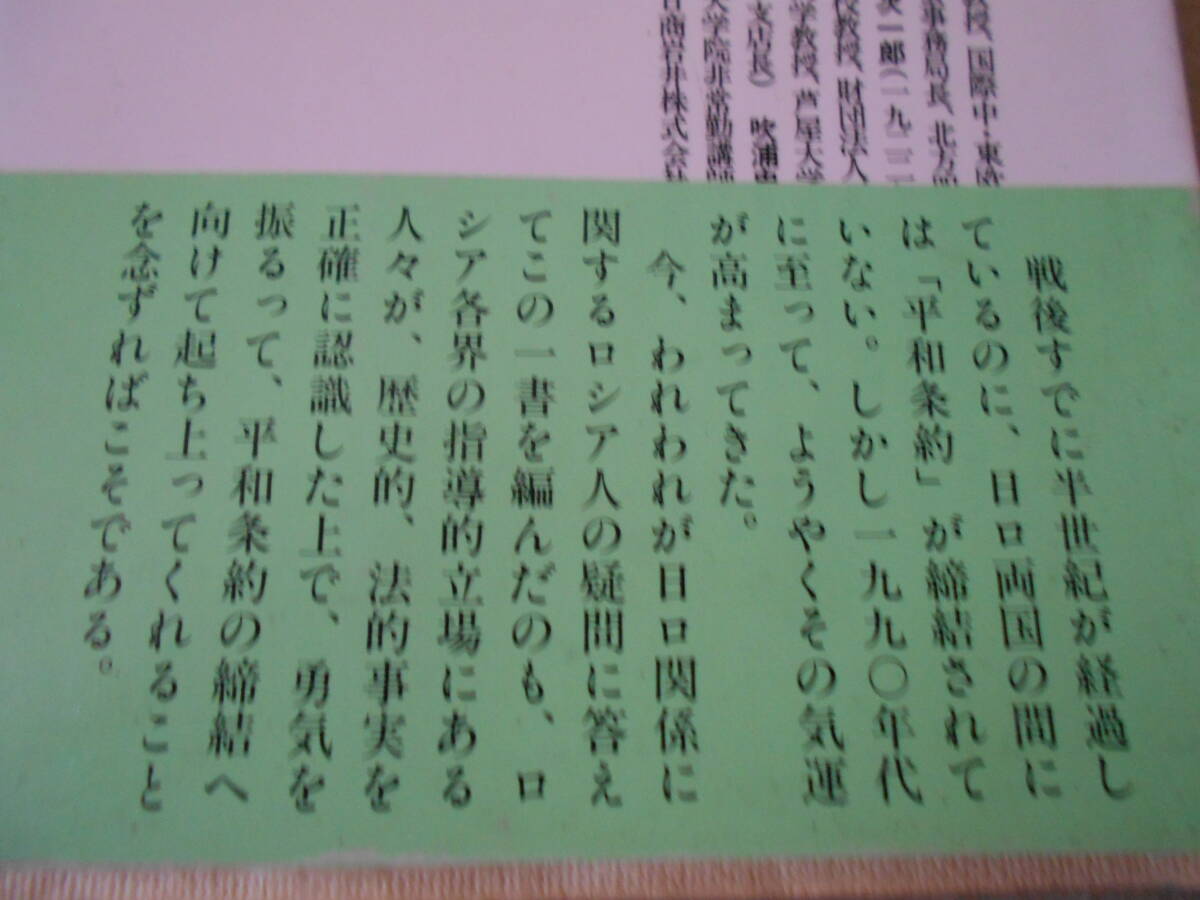 教授、国際中・東欧
事務局長、北方四
次一郎(一九三二
授教授、財団法人
学教授、芦屋大学
支店長) 吹浦忠
大学院非常勤講師
日商岩井株式会社
戦後すでに半世紀が経過し
ているのに、日ロ両国の間に
は「平和条約」が締結されて
いない。しかし一九九〇年代
に至って、ようやくその気運
が高まってきた。
今、われわれが日ロ関係に
関するロシア人の疑問に答え
てこの一書を編んだのも、ロ
シア各界の指導的立場にある
人々が、歴史的、法的事実を
正確に認識した上で、勇気を
振るって、平和条約の締結へ
向けて起ち上ってくれること
を念ずればこそである。